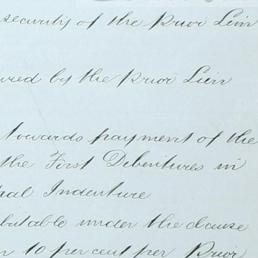 security of the Prior Lien
ured by the Prior Lien
towards payment of the
the First Debentures in
pal Indenture
butable under the clause
10 per cent per Prior